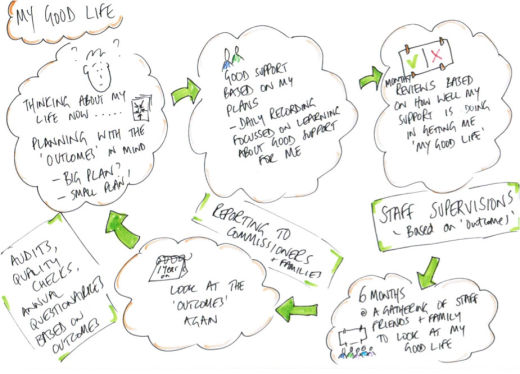 MY GOOD LIFE
? ?
THINKING ABOUT MY
LIFE NOW .....
PLANNING WITH THE
'OUTCOMES' IN MIND
- BIG PLAN?
- SMALL PLAN!
GOOD SUPPORT
BASED ON MY
PLANS
- DAILY RECORDING
FOCUSSED ON LEARNING
ABOUT GOOD SUPPORT
FOR ME
MONTHLY
REVIEWS BASED
ON HOW WELL MY
SUPPORT IS DOING
IN GETTING ME
'MY GOOD LIFE'
STAFF SUPERVISIONS
- Based on 'outcomes'
6 MONTHS
@ A GATHERING OF STAFF
FRIENDS + FAMILY
TO LOOK AT MY
GOOD LIFE
REPORTING TO
COMMISSIONERS
+ FAMILIES
1 Year
on
LOOK AT THE
'OUTCOMES'
AGAIN
AUDITS,
QUALITY
CHECKS,
ANNUAL
QUESTIONNAIRES
BASED ON
OUTCOMES